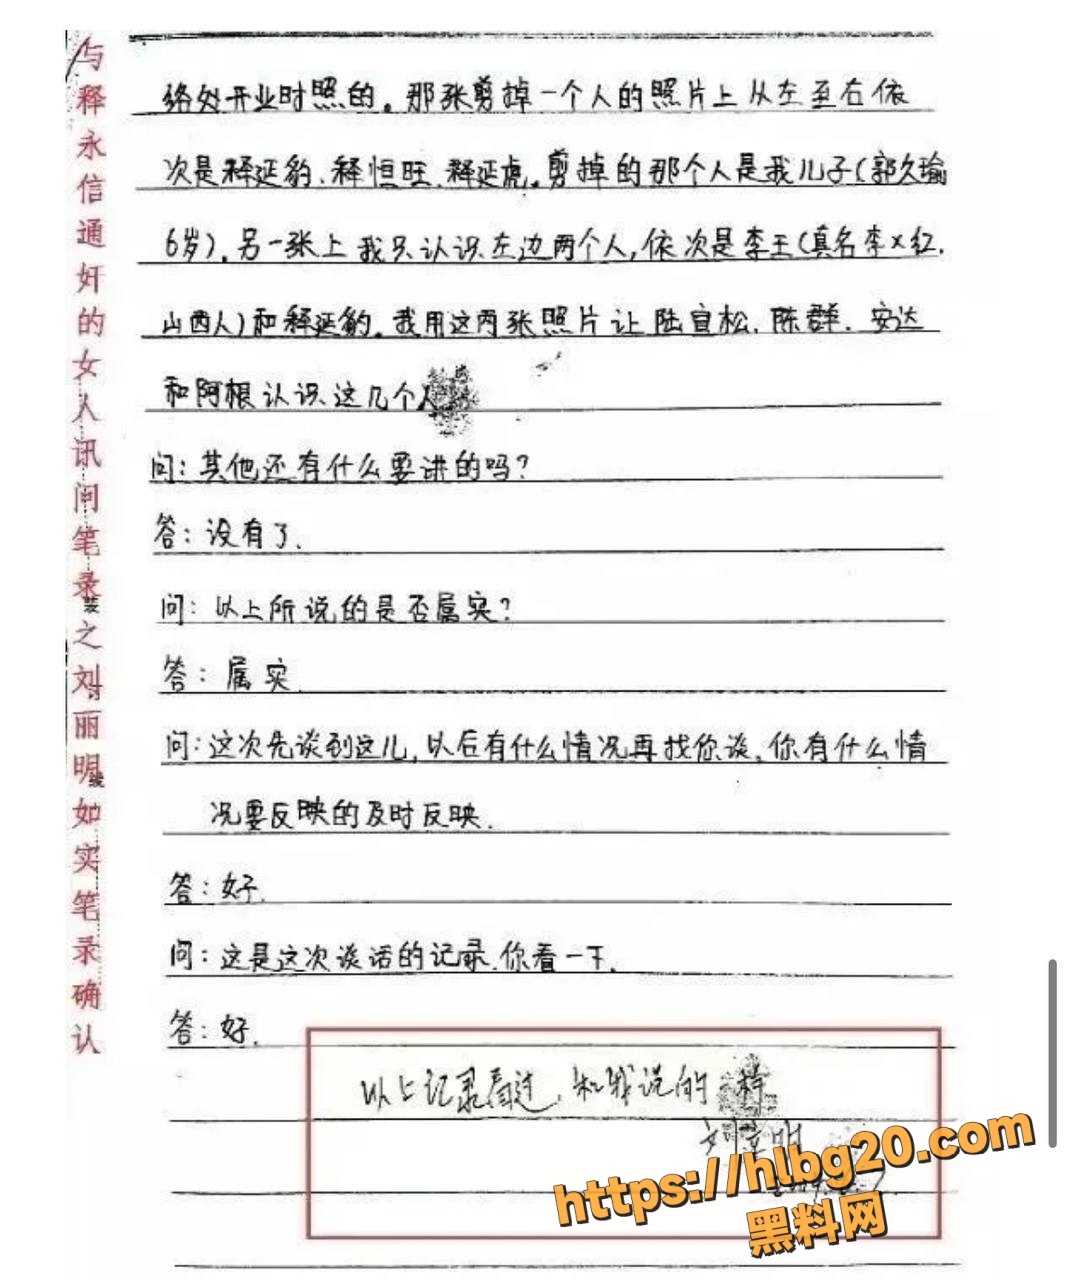 与释永信通奸的女人讯问笔录之刘丽明如实笔录确认
络处开业时照的。那张剪掉一个人的照片上从左至右依
次是释延豹、释恒旺、释延虎。剪掉的那个人是我儿子(郭久瑜
6岁)。另一张上我只认识左边两个人,依次是李王(真名李X红,
山西人)和释延豹。我用这两张照片让陆宜松、陈群、安达
和阿根认识这几个人
问:其他还有什么要讲的吗?
答:没有了.
问:以上所说的是否属实?
答:属实.
问:这次先谈到这儿,以后有什么情况再找你谈,你有什么情
况要反映的及时反映.
答:好.
问:这是这次谈话的记录,你看一下.
答:好.
以上记录看过,和我说的 样
https://hlbg20.com
黑料网